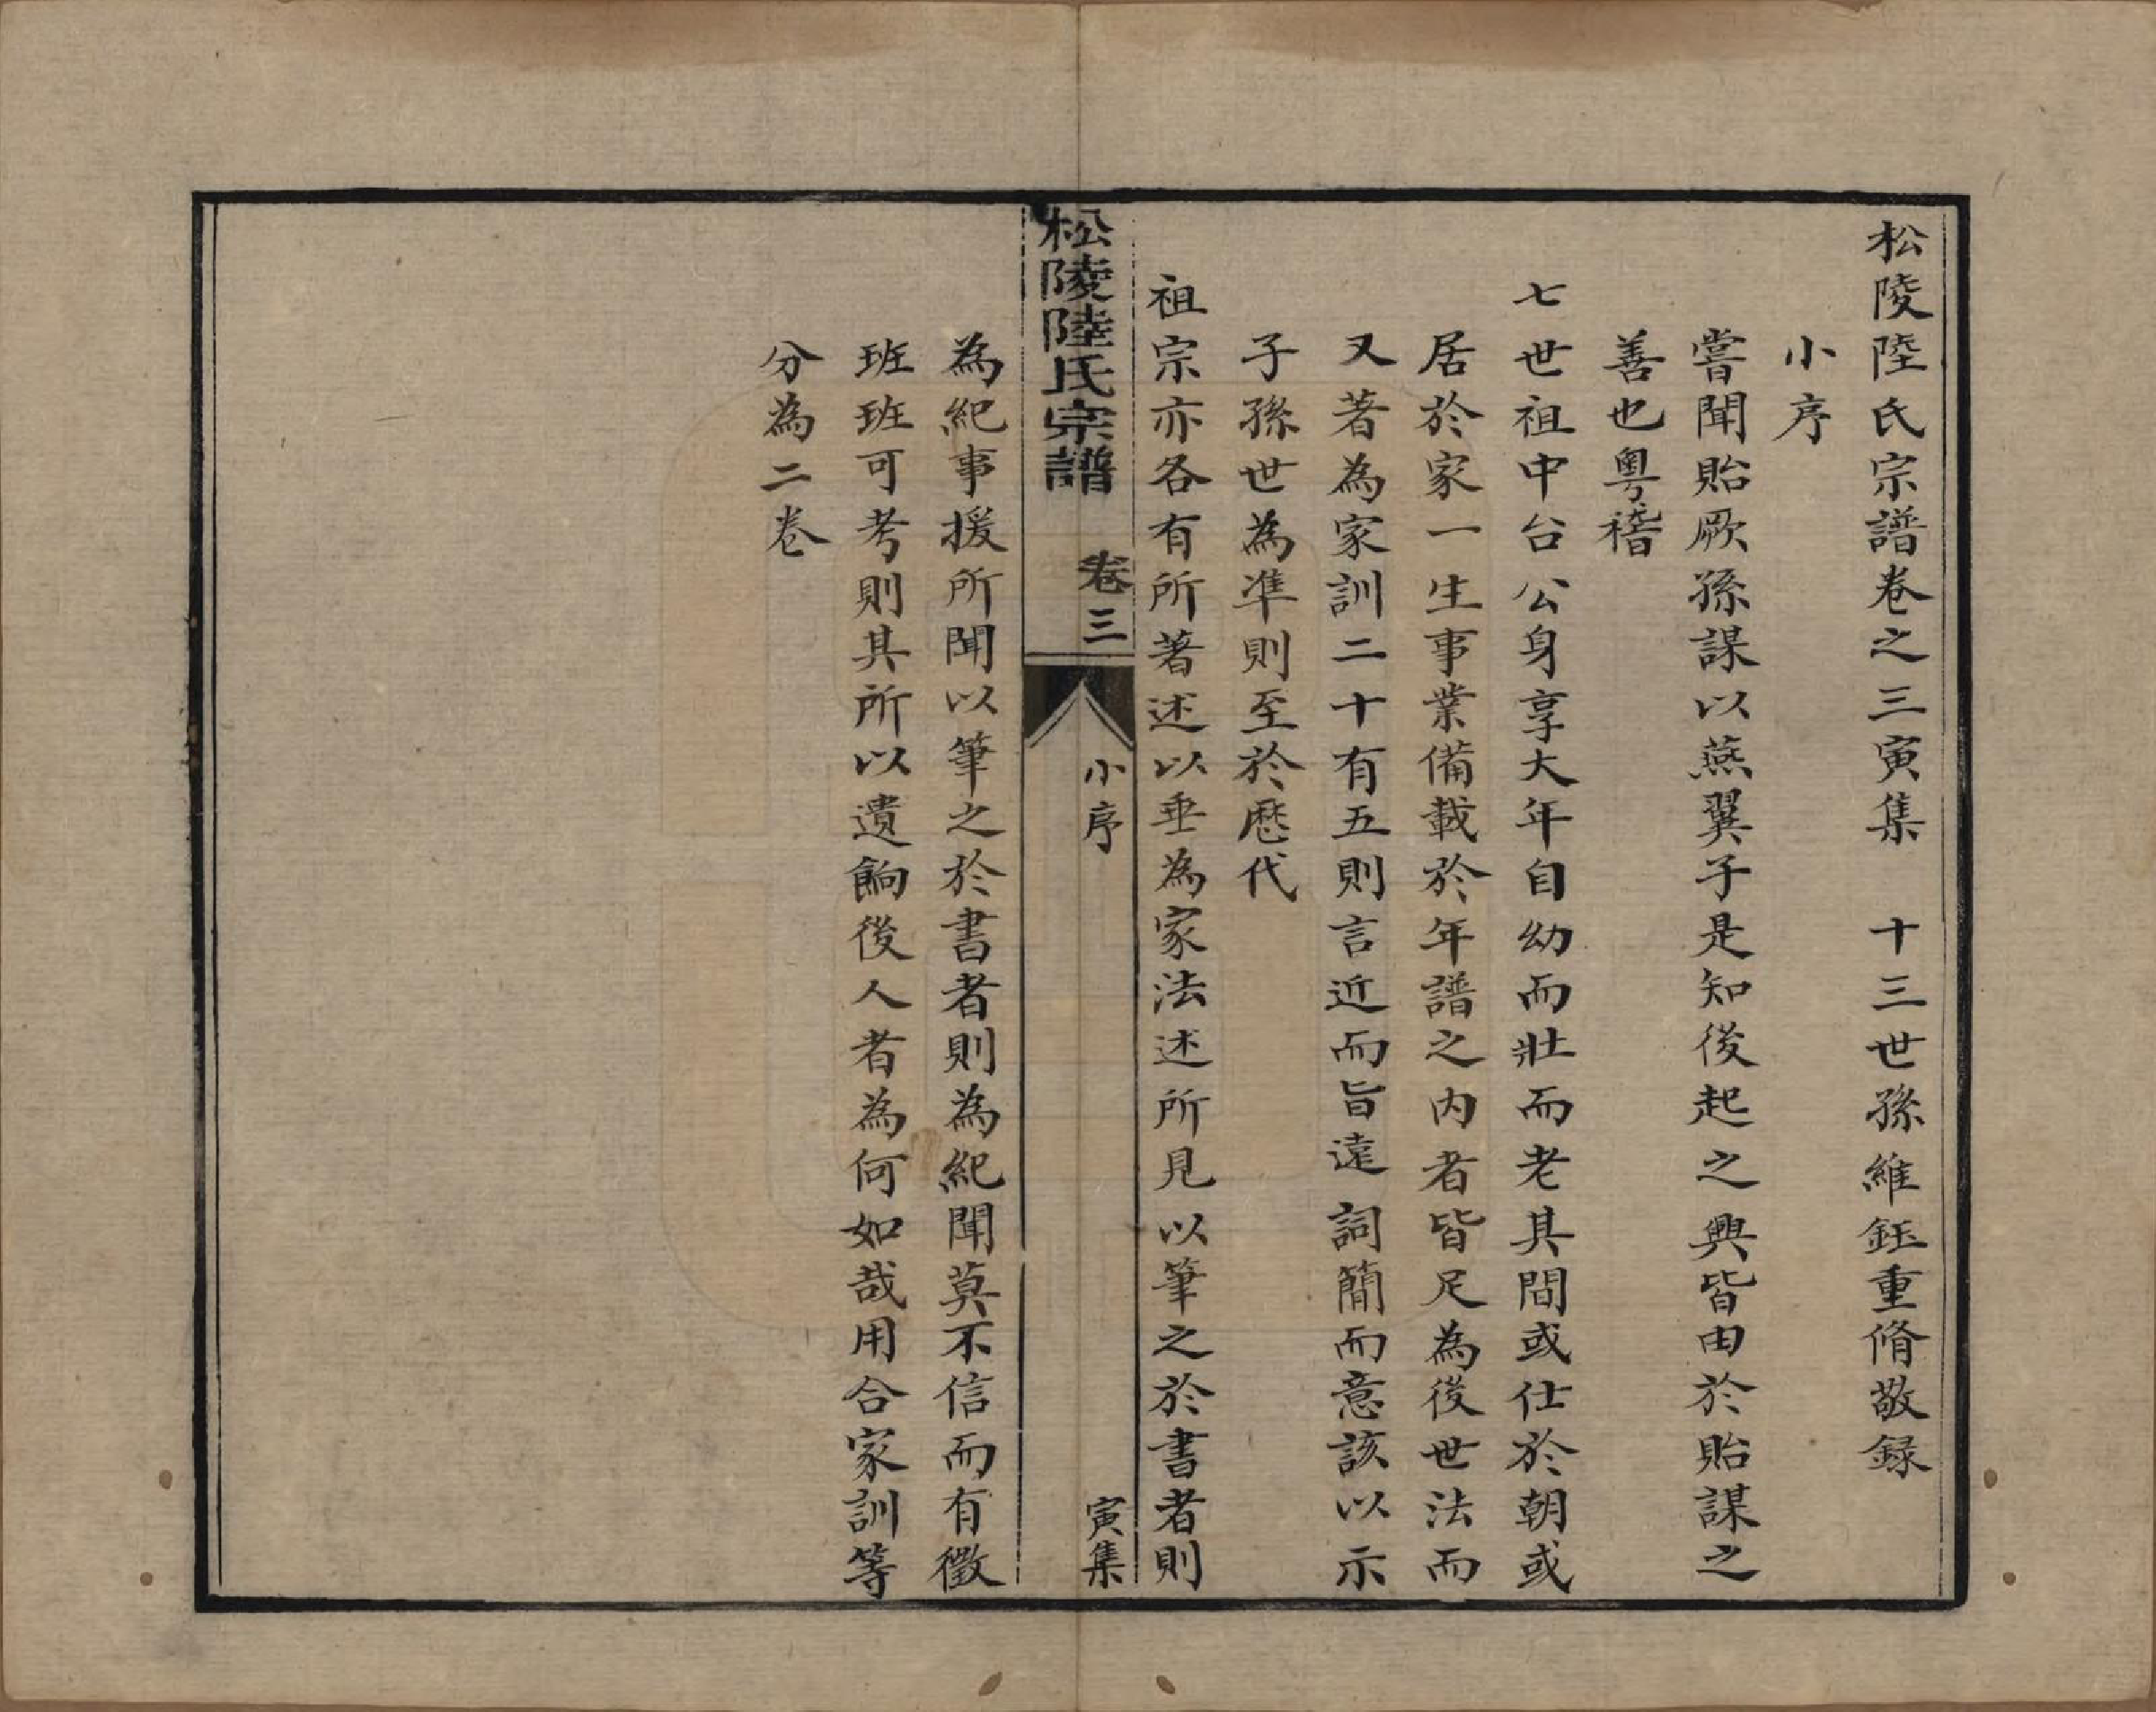 松陵陸氏宗譜卷之三寅集　十三世孫維鈺重脩敬録
小序
嘗聞貽厥孫謀以燕翼子是知後起之興皆由於貽謀之
善也粵稽
七世祖中台公身享大年自幼而壯而老其間或仕於朝或
居於家一生事業備載於年譜之内者皆足為後世法而
又著為家訓二十有五則言近而旨遠詞簡而意該以示
子孫世為準則至於歷代
祖宗亦各有所著述以垂為家法述所見以筆之於書者則
松陵陸氏宗譜　卷三　小序　寅集
為紀事援所聞以筆之於書者則為紀聞莫不信而有徵
班班可考則其所以遺餉後人者為何如哉用合家訓等
分為二卷